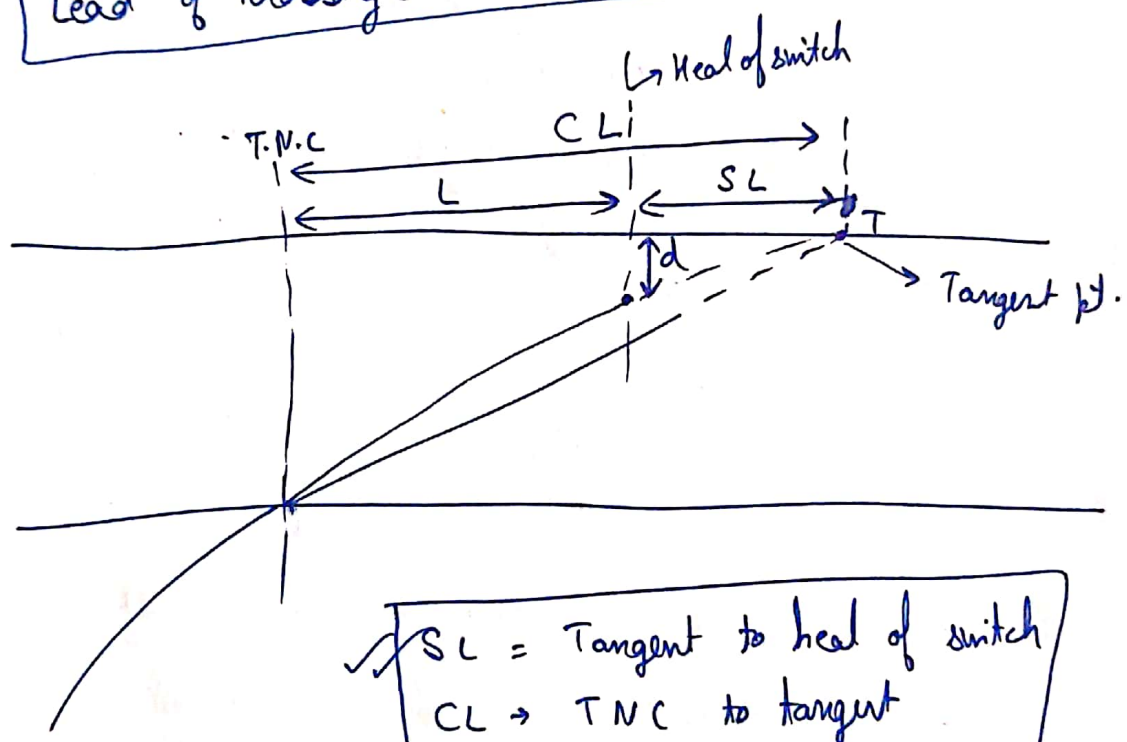 Lead of
↳ Heal of switch
T.N.C
CL
L
SL
T
d
Tangent pt.
SL = Tangent to heal of switch
CL → TNC to tangent